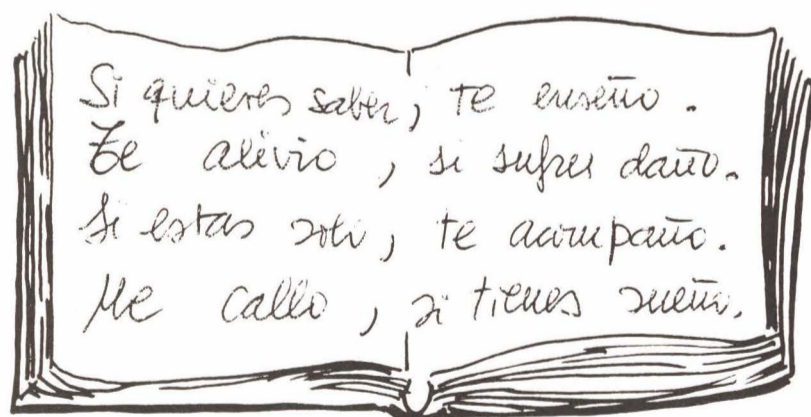 Si quieres saber, te enseño.
Te alivio, si sufres daño.
Si estas solo, te acompaño.
Me callo, si tienes sueño.